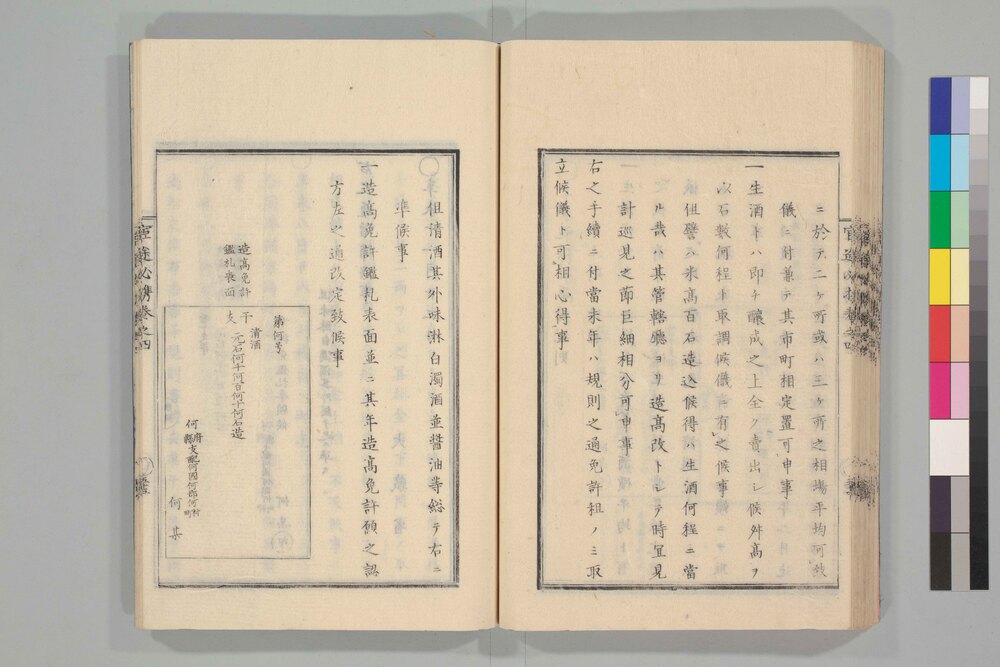 ニ於テ二ケ所或ハ三ケ所之相場平均可致
儀ニ付兼テ其市町相定置可申事
一生酒ト八即チ醸成之上全ク賣出シ候舛高ヲ
以石數何程ト取調候儀ニ有之候事
但譬ハ米高百石造込候得ハ生酒何程ニ當
ル哉ハ其管轄聽ヨリ造高改トシテ時宜見
計巡見之節巨細相分可申事
右之手續ニ付當未年ハ規則之通免許租ノミ取
立候儀ト可相心得事
官途必携卷之四
但清酒其外味淋白濁酒並醤油等総テ右ニ
準候事
一造高免許鑑札表面並ニ其年造高免許願之認
方左之通改定致候事
造高免許
鑑札表面
第何号
清酒
干支
一元石何千何百何十何石造
何府縣支配何國何郡何村町
何某
官途必携卷之四